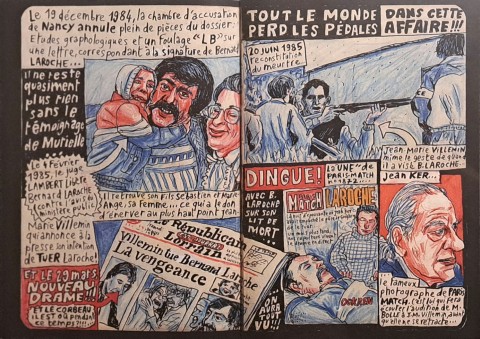 Le 19 décembre 1984, la chambre d'accusation
de Nancy annule plein de pièces du dossier:
Etudes graphologiques et un foulage "LB" sur
une lettre, correspondant à la signature de Bernard
LAROCHE...
Il ne reste
quasiment
plus rien
sans le
témoignage
de Murielle.
Le 4 Février
1985, le juge
LAMBERT libère
Bernard LAROCHE
contre l'avis du
ministère public
Jean
Marie Villemin
qui annonce à la
presse son intention
de TUER Laroche!
ET LE 29 mars
NOUVEAU
DRAME!!!
ET LE CORBEAU
IL EST OÙ pendant
ce temps?!!!
Il retrouve son fils Sébastien et Marie
Ange, sa femme... ce qui a le don
d'énerver au plus haut point Jean
Républicain
Lorrain
Villemin tue Bernard Laroche
La vengeance
TOUT LE MONDE
PERD LES PÉDALES
DANS CETTE
AFFAIRE!!!
20 JUIN 1985
reconstitution
du meurtre.
Jean Marie VILLEMIN
mime le geste de quand
il a visé B. LAROCHE
DINGUE!
AVEC B.
LAROCHE
SUR SON
LIT DE
MORT...
ON
AURA
TOUT
VU!!
LA "UNE" de
PARIS-MATCH
MATCH
LAROCHE
Jean KER...
...le fameux
photographe de PARIS
MATCH. C'est lui qui fera
écouter l'audition de M.
BOLLE à J.M. Villemin avant
qu'elle ne se rétracte...